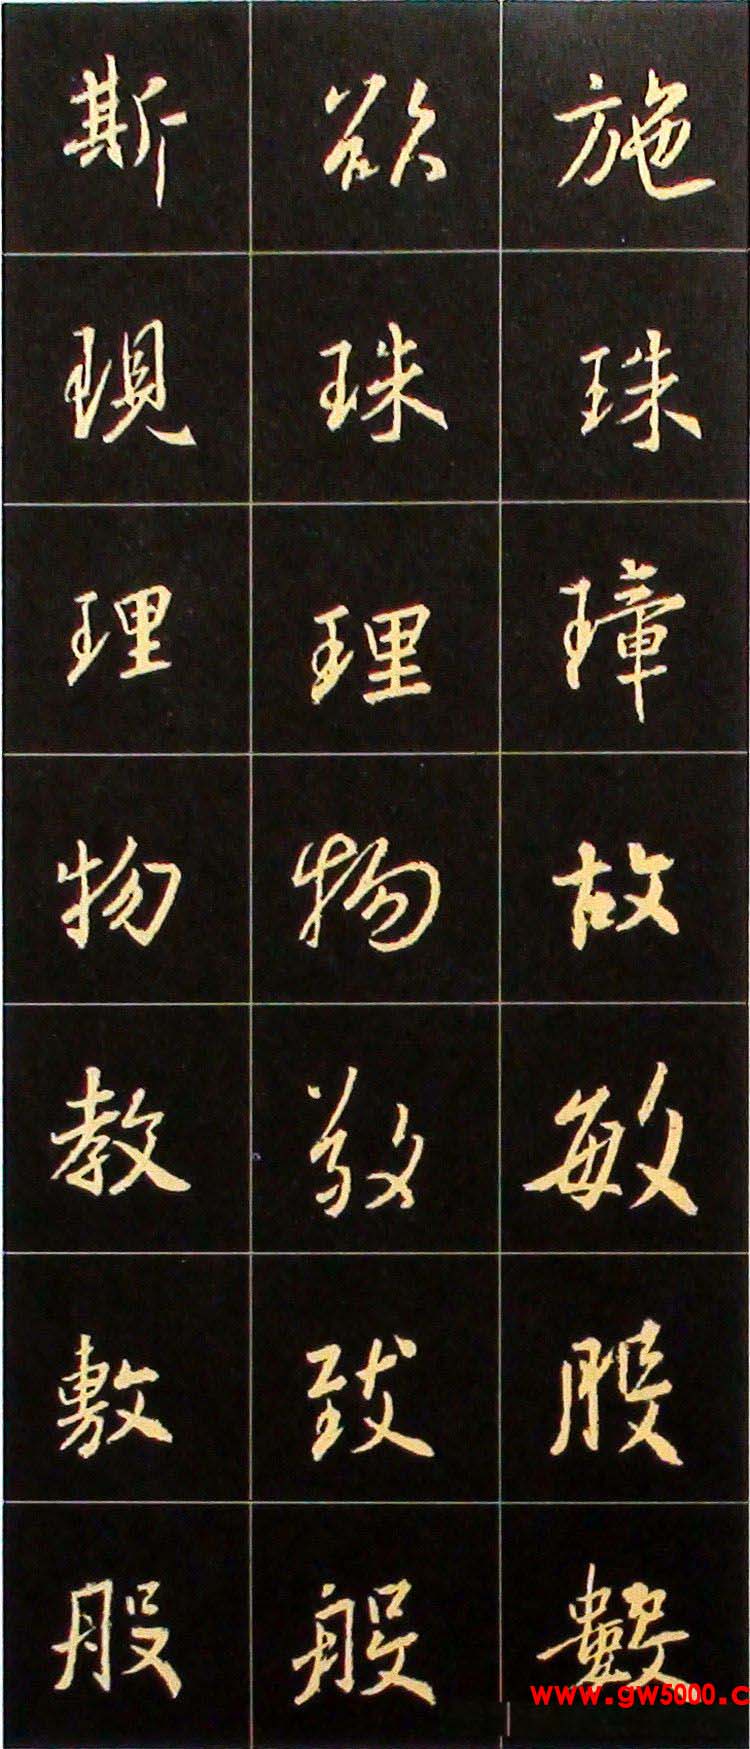 斯欲施
現珠珠
理理璋
物物故
教敬敏
敷致股
股般數
www.gw5000.c